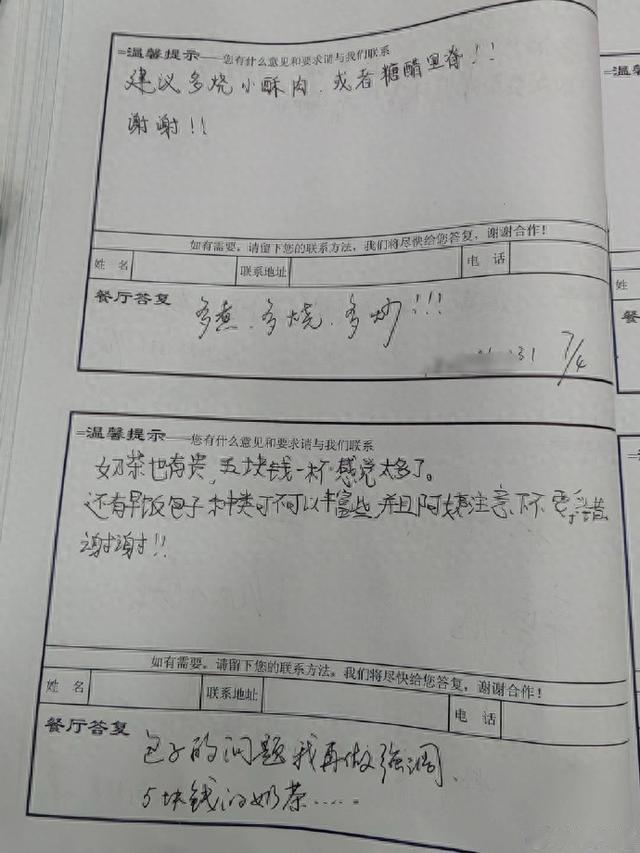 =温馨提示——您有什么意见和要求请与我们联系
建议多烧小酥肉.或者糖醋里脊!!
谢谢!!
如有需要,请留下您的联系方法,我们将尽快给您答复,谢谢合作!
姓 名 联系地址 电 话
餐厅答复
多煮.多烧.多炒!!!
31 7/4
=温馨提示——您有什么意见和要求请与我们联系
奶茶也有贵,五块钱一杯感觉太多了。
还有早饭包子种类可不可以丰富些,并且阿姨注意下不要弄错
谢谢!!
如有需要,请留下您的联系方法,我们将尽快给您答复,谢谢合作!
姓 名 联系地址 电 话
餐厅答复
包子的问题我再做强调、
5块钱的奶茶……
=温馨提示
姓
餐